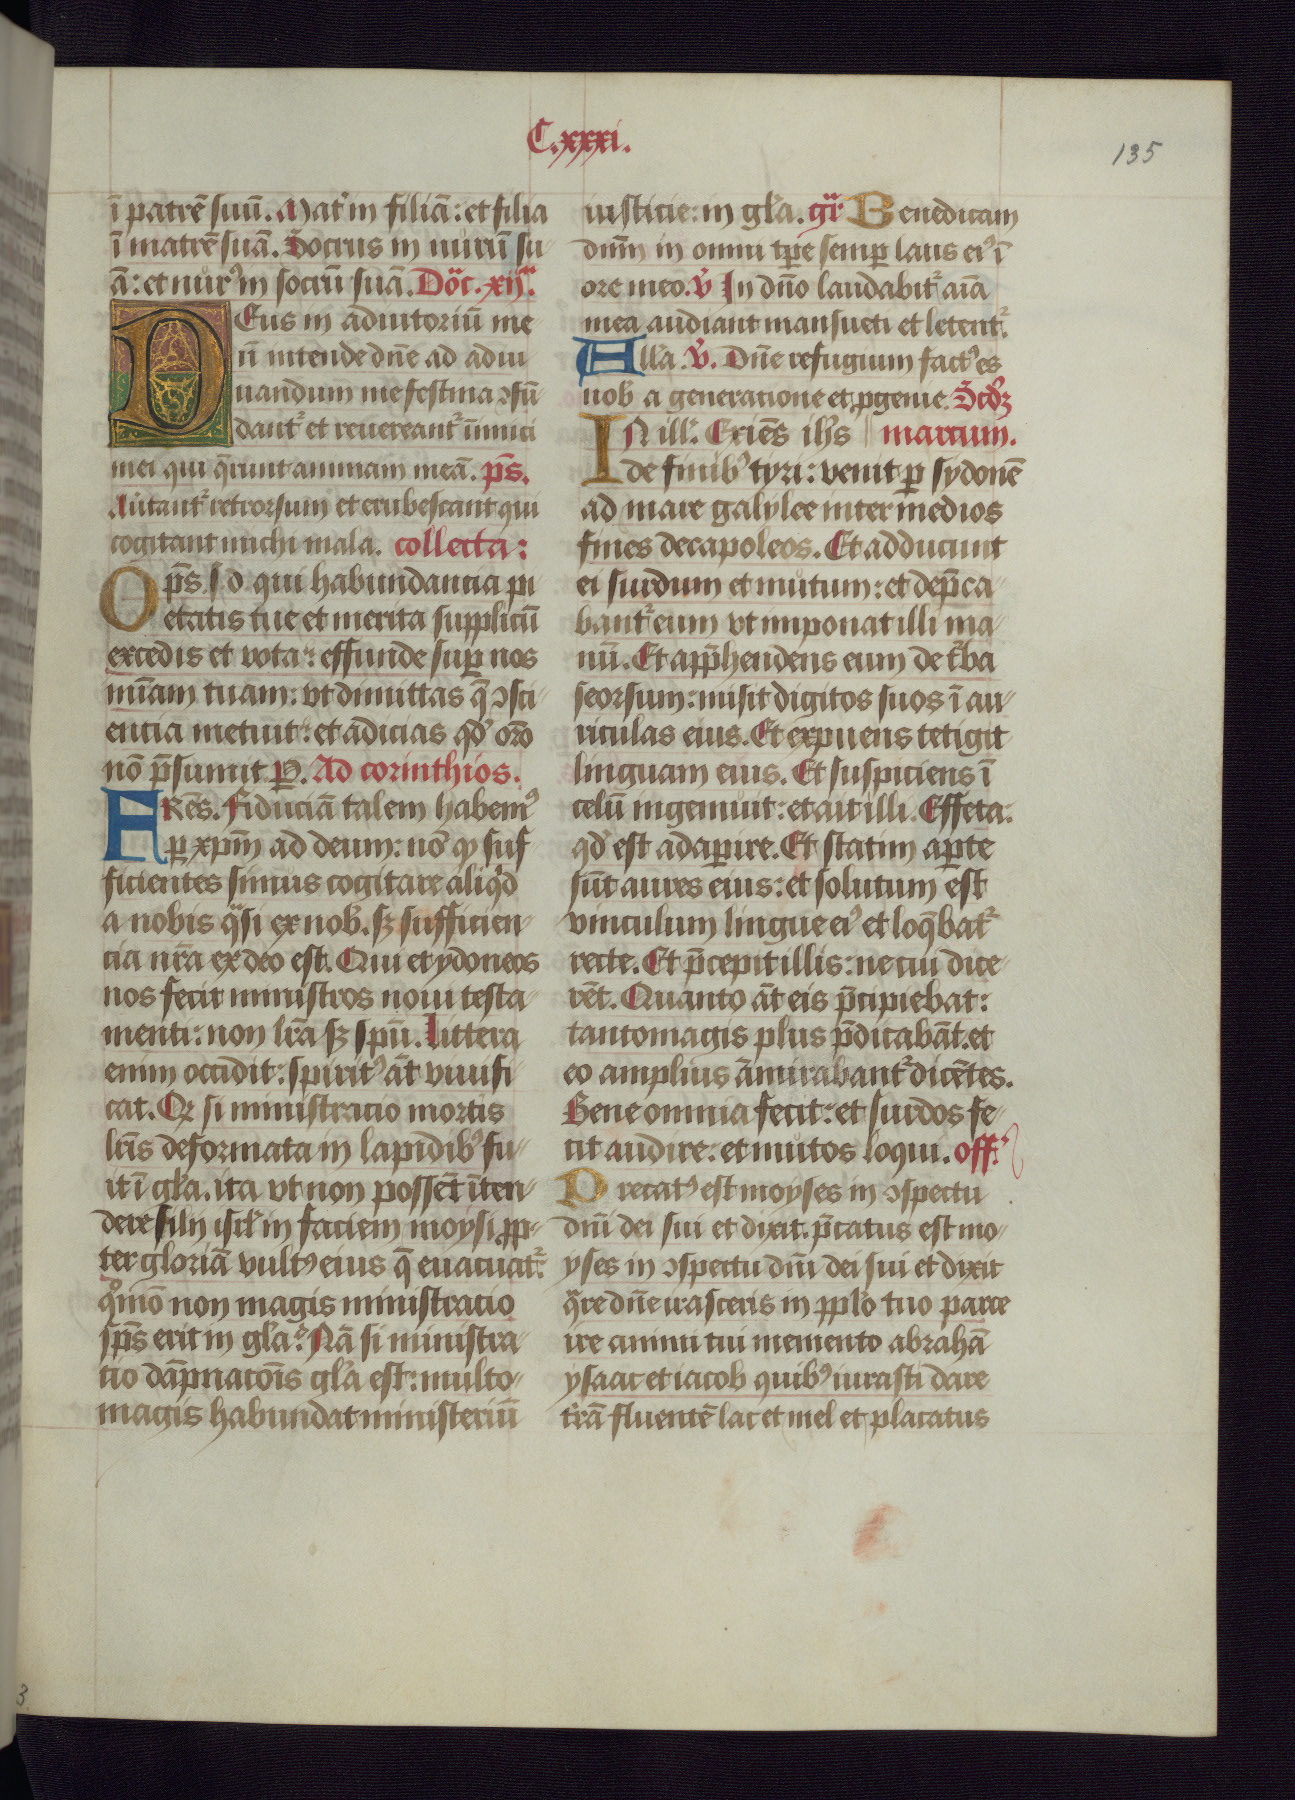 C.xxxi.
135
ī patrē suū. Mat᷑ in filiā: et filia
ī matrē suā. Socrus in nurū su-
ā: et nurꝰ in socrū suā. Do͞c. xij᷑.
DEus in adiutoriū me-
ū intende dn̄e ad adiu-
uandum me festina ꝯfū-
dant᷑ et reuereant᷑ inimici
mei qui q̄runt animam meā. p̄s.
Au̇tant᷑ retrorsum et erubescant qui
cogitant michi mala. collecta:
Op̄s. s. d. qui habundancia pi
etatis tue et merita supplicū
excedis et vota: effunde suꝑ nos
mīam tuam: vt dimittas q̄ ꝯsci-
encia metuit: et adicias qd᷑ or̄o
nō p̄sumit. P. Ad corinthios.
FRēs. Fiduciā talem habemꝰ
ꝑ xp̄m ad deum: nō ꝙ suf
ficientes simus cogitare aliq͛d
a nobis q̄si ex nob̄. sꝫ sufficien-
cia nr̄a ex deo est. Qui et ydoneos
nos fecit ministros noui testa-
menti: non lr̄a sꝫ spū. Littera
enim occidit: spiritꝰ āt viuifi-
cat. Qꝫ si ministracio mortis
lr̄is deformata in lapidibꝰ fu-
it ī gl̄a. ita vt non possēt īten-
dere filij isr̄l in faciem moysi ꝓp-
ter gloriā vultꝰ eius q̄ euacuat᷑:
q͛mō non magis ministracio
sp̄s erit in gl̄a? Nā si ministra-
cio dāpnacōis gl̄a est: multo-
magis habundat ministeriū
iusticie: in gl̄a. gr̄ Benedicam
dn̄m in omni tp̄e semꝑ laus eiꝰ ī
ore meo. v̄ In dn̄o laudabit᷑ aīa
mea audiant mansueti et letent᷑
All̄a. v̄. Dn̄e refugium factꝰ es
nob̄ a generatione et ꝓgenie. Scd̄ꝫ
IN ill᷑. Exiēs ih̄s marcum.
de finibꝰ tyri: venit ꝑ sydonē
ad mare galylee inter medios
fines decapoleos. Et adducunt
ei surdum et mutum: et dep̄ca-
bant᷑ eum vt imponat illi ma-
nū. Et app̄hendens eum de t᷑ba
seorsum: misit digitos suos ī au-
riculas eius. Et expuens tetigit
linguam eius. Et suspiciens ī
celū ingemuit: et ait illi. Effeta:
qd̄ est adaꝑire. Et statim aꝑte
sūt aures eius: et solutum est
vinculum lingue eiꝰ et loq̄bat᷑
recte. Et p̄cepit illis: ne cui dice-
rēt. Quanto āt eis p̄cipiebat:
tantomagis plus p̄dicabāt. et
eo amplius āmirabant᷑ dicētes.
Bene omnia fecit: et surdos fe-
cit audire: et mutos loqui. off᷑.
Precatꝰ est moyses in ꝯspectu
dn̄i dei sui et dixit. p̄catus est mo-
yses in ꝯspectu dn̄i dei sui et dixit
q̄re dn̄e irasceris in ꝓpl̄o tuo parce
ire animi tui memento abrahā
ysaac et iacob quibꝰ iurasti dare
t᷑rā fluentē lac et mel et placatus